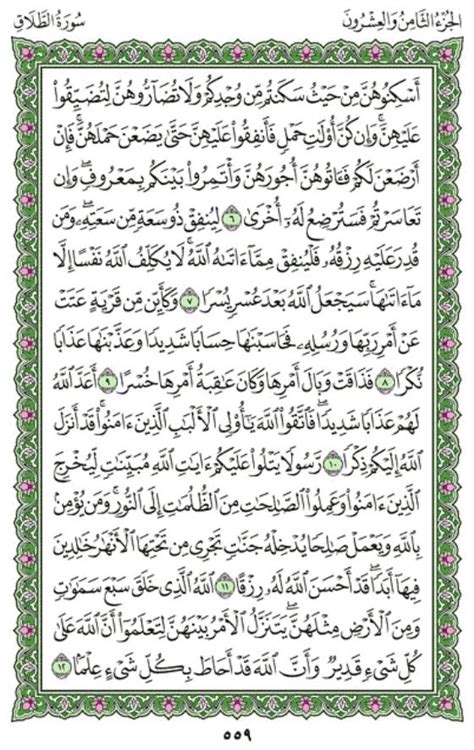 سُورَةُ الطَّلَاقِ
الجُزْءُ الثَّامِنُ وَالعِشْرُونَ
أَسْكِنُوهُنَّ مِنْ حَيْثُ سَكَنتُم مِّن وُجْدِكُمْ وَلَا تُضَآرُّوهُنَّ لِتُضَيِّقُوا۟
عَلَيْهِنَّ ۚ وَإِن كُنَّ أُو۟لَٰتِ حَمْلٍ فَأَنفِقُوا۟ عَلَيْهِنَّ حَتَّىٰ يَضَعْنَ حَمْلَهُنَّ ۚ فَإِنْ
أَرْضَعْنَ لَكُمْ فَـَٔاتُوهُنَّ أُجُورَهُنَّ ۖ وَأْتَمِرُوا۟ بَيْنَكُم بِمَعْرُوفٍ ۖ وَإِن
تَعَاسَرْتُمْ فَسَتُرْضِعُ لَهُۥٓ أُخْرَىٰ ٦ لِيُنفِقْ ذُو سَعَةٍ مِّن سَعَتِهِۦ ۖ وَمَن
قُدِرَ عَلَيْهِ رِزْقُهُۥ فَلْيُنفِقْ مِمَّآ ءَاتَىٰهُ ٱللَّهُ ۚ لَا يُكَلِّفُ ٱللَّهُ نَفْسًا إِلَّا
مَآ ءَاتَىٰهَا ۚ سَيَجْعَلُ ٱللَّهُ بَعْدَ عُسْرٍ يُسْرًا ٧ وَكَأَيِّن مِّن قَرْيَةٍ عَتَتْ
عَنْ أَمْرِ رَبِّهَا وَرُسُلِهِۦ فَحَاسَبْنَٰهَا حِسَابًا شَدِيدًا وَعَذَّبْنَٰهَا عَذَابًا
نُّكْرًا ٨ فَذَاقَتْ وَبَالَ أَمْرِهَا وَكَانَ عَٰقِبَةُ أَمْرِهَا خُسْرًا ٩ أَعَدَّ ٱللَّهُ
لَهُمْ عَذَابًا شَدِيدًا ۖ فَٱتَّقُوا۟ ٱللَّهَ يَٰٓأُو۟لِى ٱلْأَلْبَٰبِ ٱلَّذِينَ ءَامَنُوا۟ ۚ قَدْ أَنزَلَ
ٱللَّهُ إِلَيْكُمْ ذِكْرًا ١٠ رَّسُولًا يَتْلُوا۟ عَلَيْكُمْ ءَايَٰتِ ٱللَّهِ مُبَيِّنَٰتٍ لِّيُخْرِجَ
ٱلَّذِينَ ءَامَنُوا۟ وَعَمِلُوا۟ ٱلصَّٰلِحَٰتِ مِنَ ٱلظُّلُمَٰتِ إِلَى ٱلنُّورِ ۚ وَمَن يُؤْمِنۢ
بِٱللَّهِ وَيَعْمَلْ صَٰلِحًا يُدْخِلْهُ جَنَّٰتٍ تَجْرِى مِن تَحْتِهَا ٱلْأَنْهَٰرُ خَٰلِدِينَ
فِيهَآ أَبَدًا ۖ قَدْ أَحْسَنَ ٱللَّهُ لَهُۥ رِزْقًا ١١ ٱللَّهُ ٱلَّذِى خَلَقَ سَبْعَ سَمَٰوَٰتٍ
وَمِنَ ٱلْأَرْضِ مِثْلَهُنَّ يَتَنَزَّلُ ٱلْأَمْرُ بَيْنَهُنَّ لِتَعْلَمُوٓا۟ أَنَّ ٱللَّهَ عَلَىٰ
كُلِّ شَىْءٍ قَدِيرٌ وَأَنَّ ٱللَّهَ قَدْ أَحَاطَ بِكُلِّ شَىْءٍ عِلْمًۢا ١٢
٥٥٩